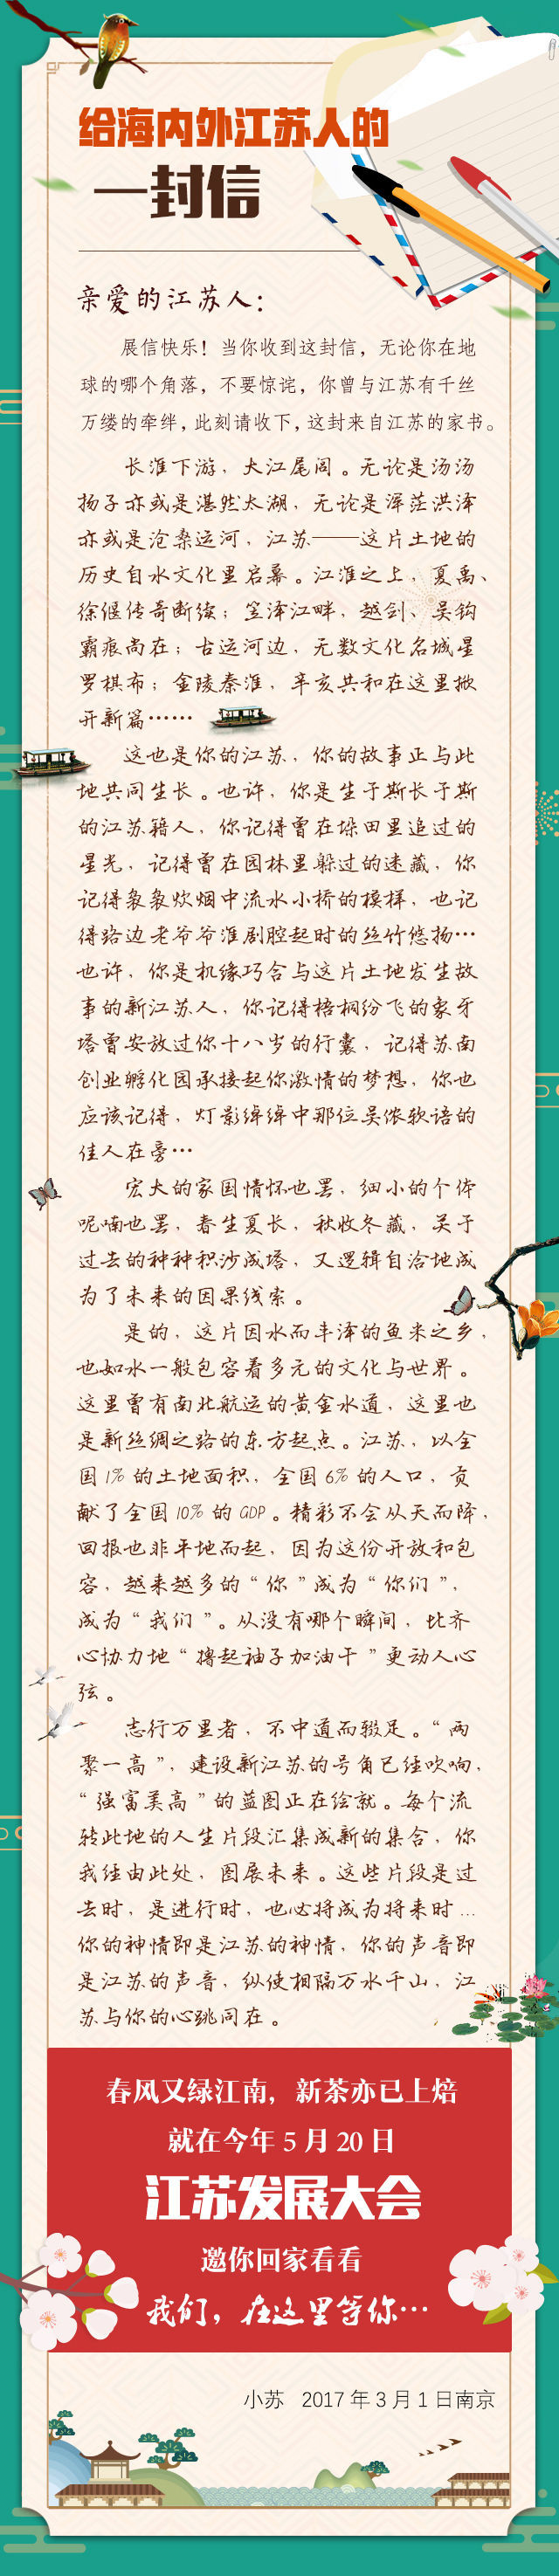 给海内外江苏人的
一封信
亲爱的江苏人：
展信快乐！当你收到这封信，无论你在地
球的哪个角落，不要惊诧，你曾与江苏有千丝
万缕的牵绊，此刻请收下，这封来自江苏的家书。
长淮下游，大江尾闾。无论是汤汤
扬子亦或是湛然太湖，无论是浑茫洪泽
亦或是沧桑运河，江苏——这片土地的
历史自水文化里启幕。江淮之上，夏禹、
徐偃传奇断续；笠泽江畔，越剑、吴钩
霸痕尚在；古运河边，无数文化名城星
罗棋布；金陵秦淮，辛亥共和在这里掀
开新篇……
这也是你的江苏，你的故事正与此
地共同生长。也许，你是生于斯长于斯
的江苏籍人，你记得曾在垛田里追过的
星光，记得曾在园林里躲过的迷藏，你
记得袅袅炊烟中流水小桥的模样，也记
得路边老爷爷淮剧腔起时的丝竹悠扬…
也许，你是机缘巧合与这片土地发生故
事的新江苏人，你记得梧桐纷飞的象牙
塔曾安放过你十八岁的行囊，记得苏南
创业孵化园承接起你激情的梦想，你也
应该记得，灯影绰绰中那位吴侬软语的
佳人在旁…
宏大的家国情怀也罢，细小的个体
呢喃也罢，春生夏长，秋收冬藏，关于
过去的种种积沙成塔，又逻辑自洽地成
为了未来的因果线索。
是的，这片因水而丰泽的鱼米之乡，
也如水一般包容着多元的文化与世界。
这里曾有南北航运的黄金水道，这里也
是新丝绸之路的东方起点。江苏，以全
国1%的土地面积，全国6%的人口，贡
献了全国10%的GDP。精彩不会从天而降，
回报也非平地而起，因为这份开放和包
容，越来越多的“你”成为“你们”，
成为“我们”。从没有哪个瞬间，比齐
心协力地“撸起袖子加油干”更动人心
弦。
志行万里者，不中道而辍足。“两
聚一高”，建设新江苏的号角已经吹响，
“强富美高”的蓝图正在绘就。每个流
转此地的人生片段汇集成新的集合，你
我经由此处，图展未来。这些片段是过
去时，是进行时，也必将成为将来时...
你的神情即是江苏的神情，你的声音即
是江苏的声音，纵使相隔万水千山，江
苏与你的心跳同在。
春风又绿江南，新茶亦已上焙
就在今年5月20日
江苏发展大会
邀你回家看看
我们，在这里等你…
小苏 2017年3月1日南京